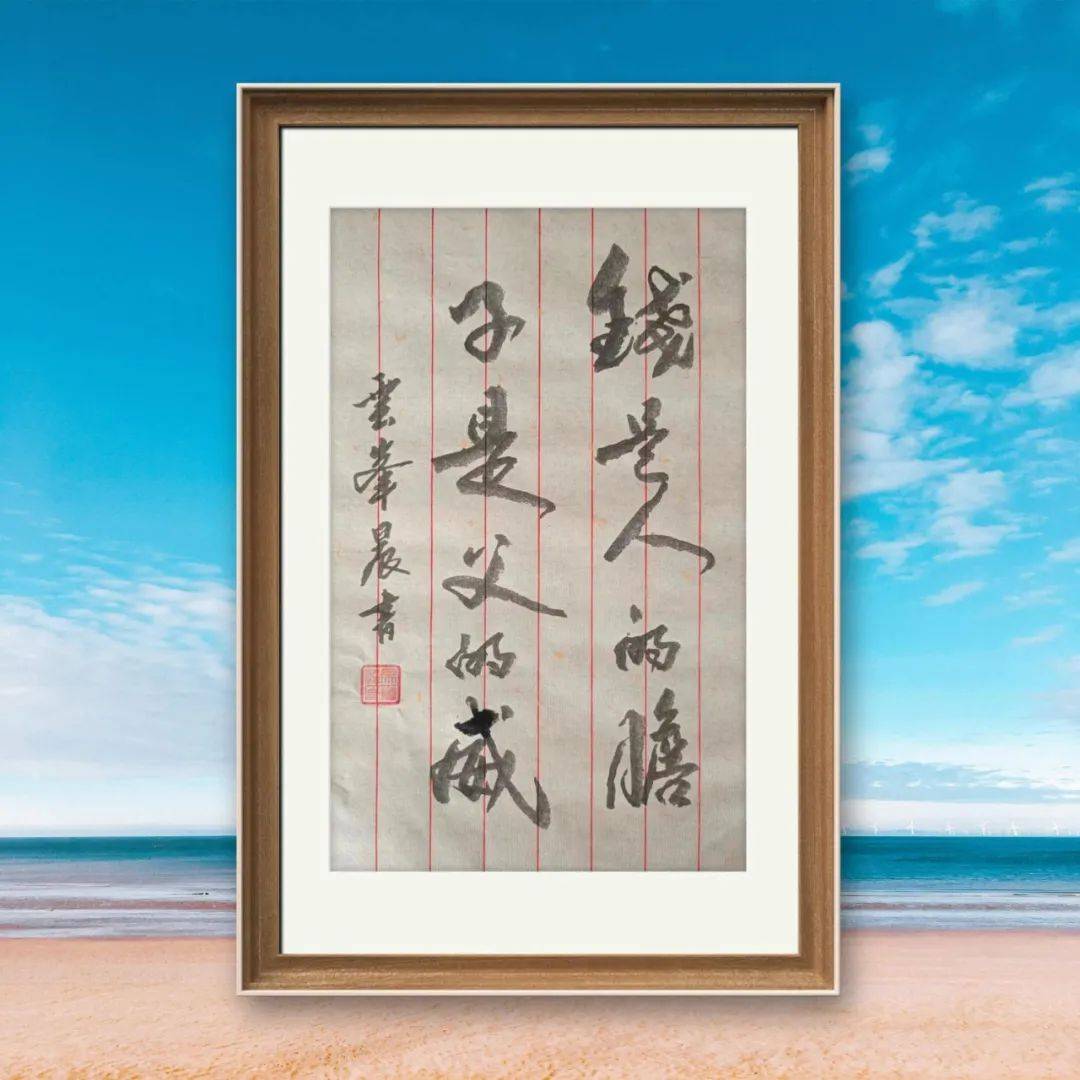 錢是人的膽
子是父的威
雲峯晨書